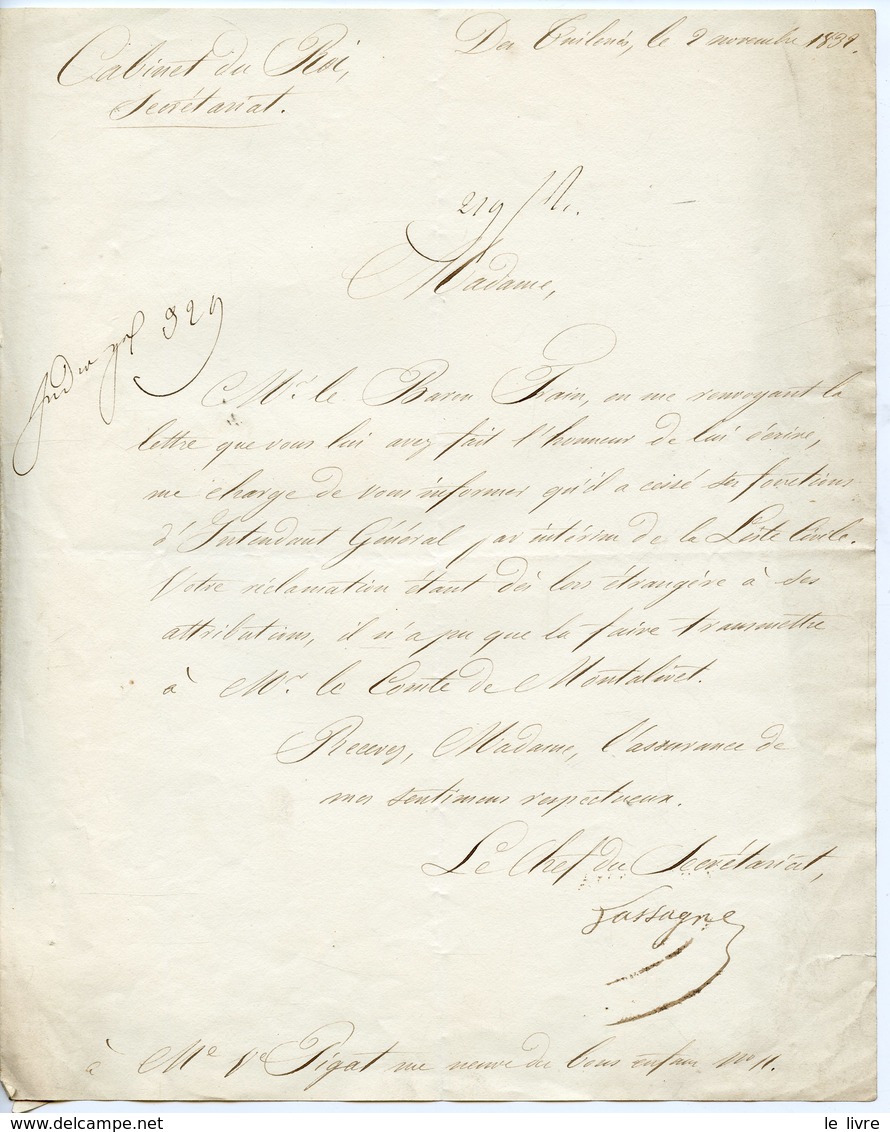 Cabinet du Roi,
Secrétariat.
Des Tuileries, le 2 novembre 1832.
219
Madame,
329
Mr. le Baron Fain, en me renvoyant la
lettre que vous lui avez fait l'honneur de lui écrire,
me charge de vous informer qu'il a cessé ses fonctions
d'Intendant Général par intérim de la Liste Civile.
Votre réclamation étant dès lors étrangère à ses
attributions, il n'a pu que la faire transmettre
à Mr. le Comte de Montalivet.
Recevez, Madame, l'assurance de
mes sentimens respectueux.
Le Chef du Secrétariat,
Lassagne
à Me Ve Pigat rue neuve des bons enfans No 11.
le livre